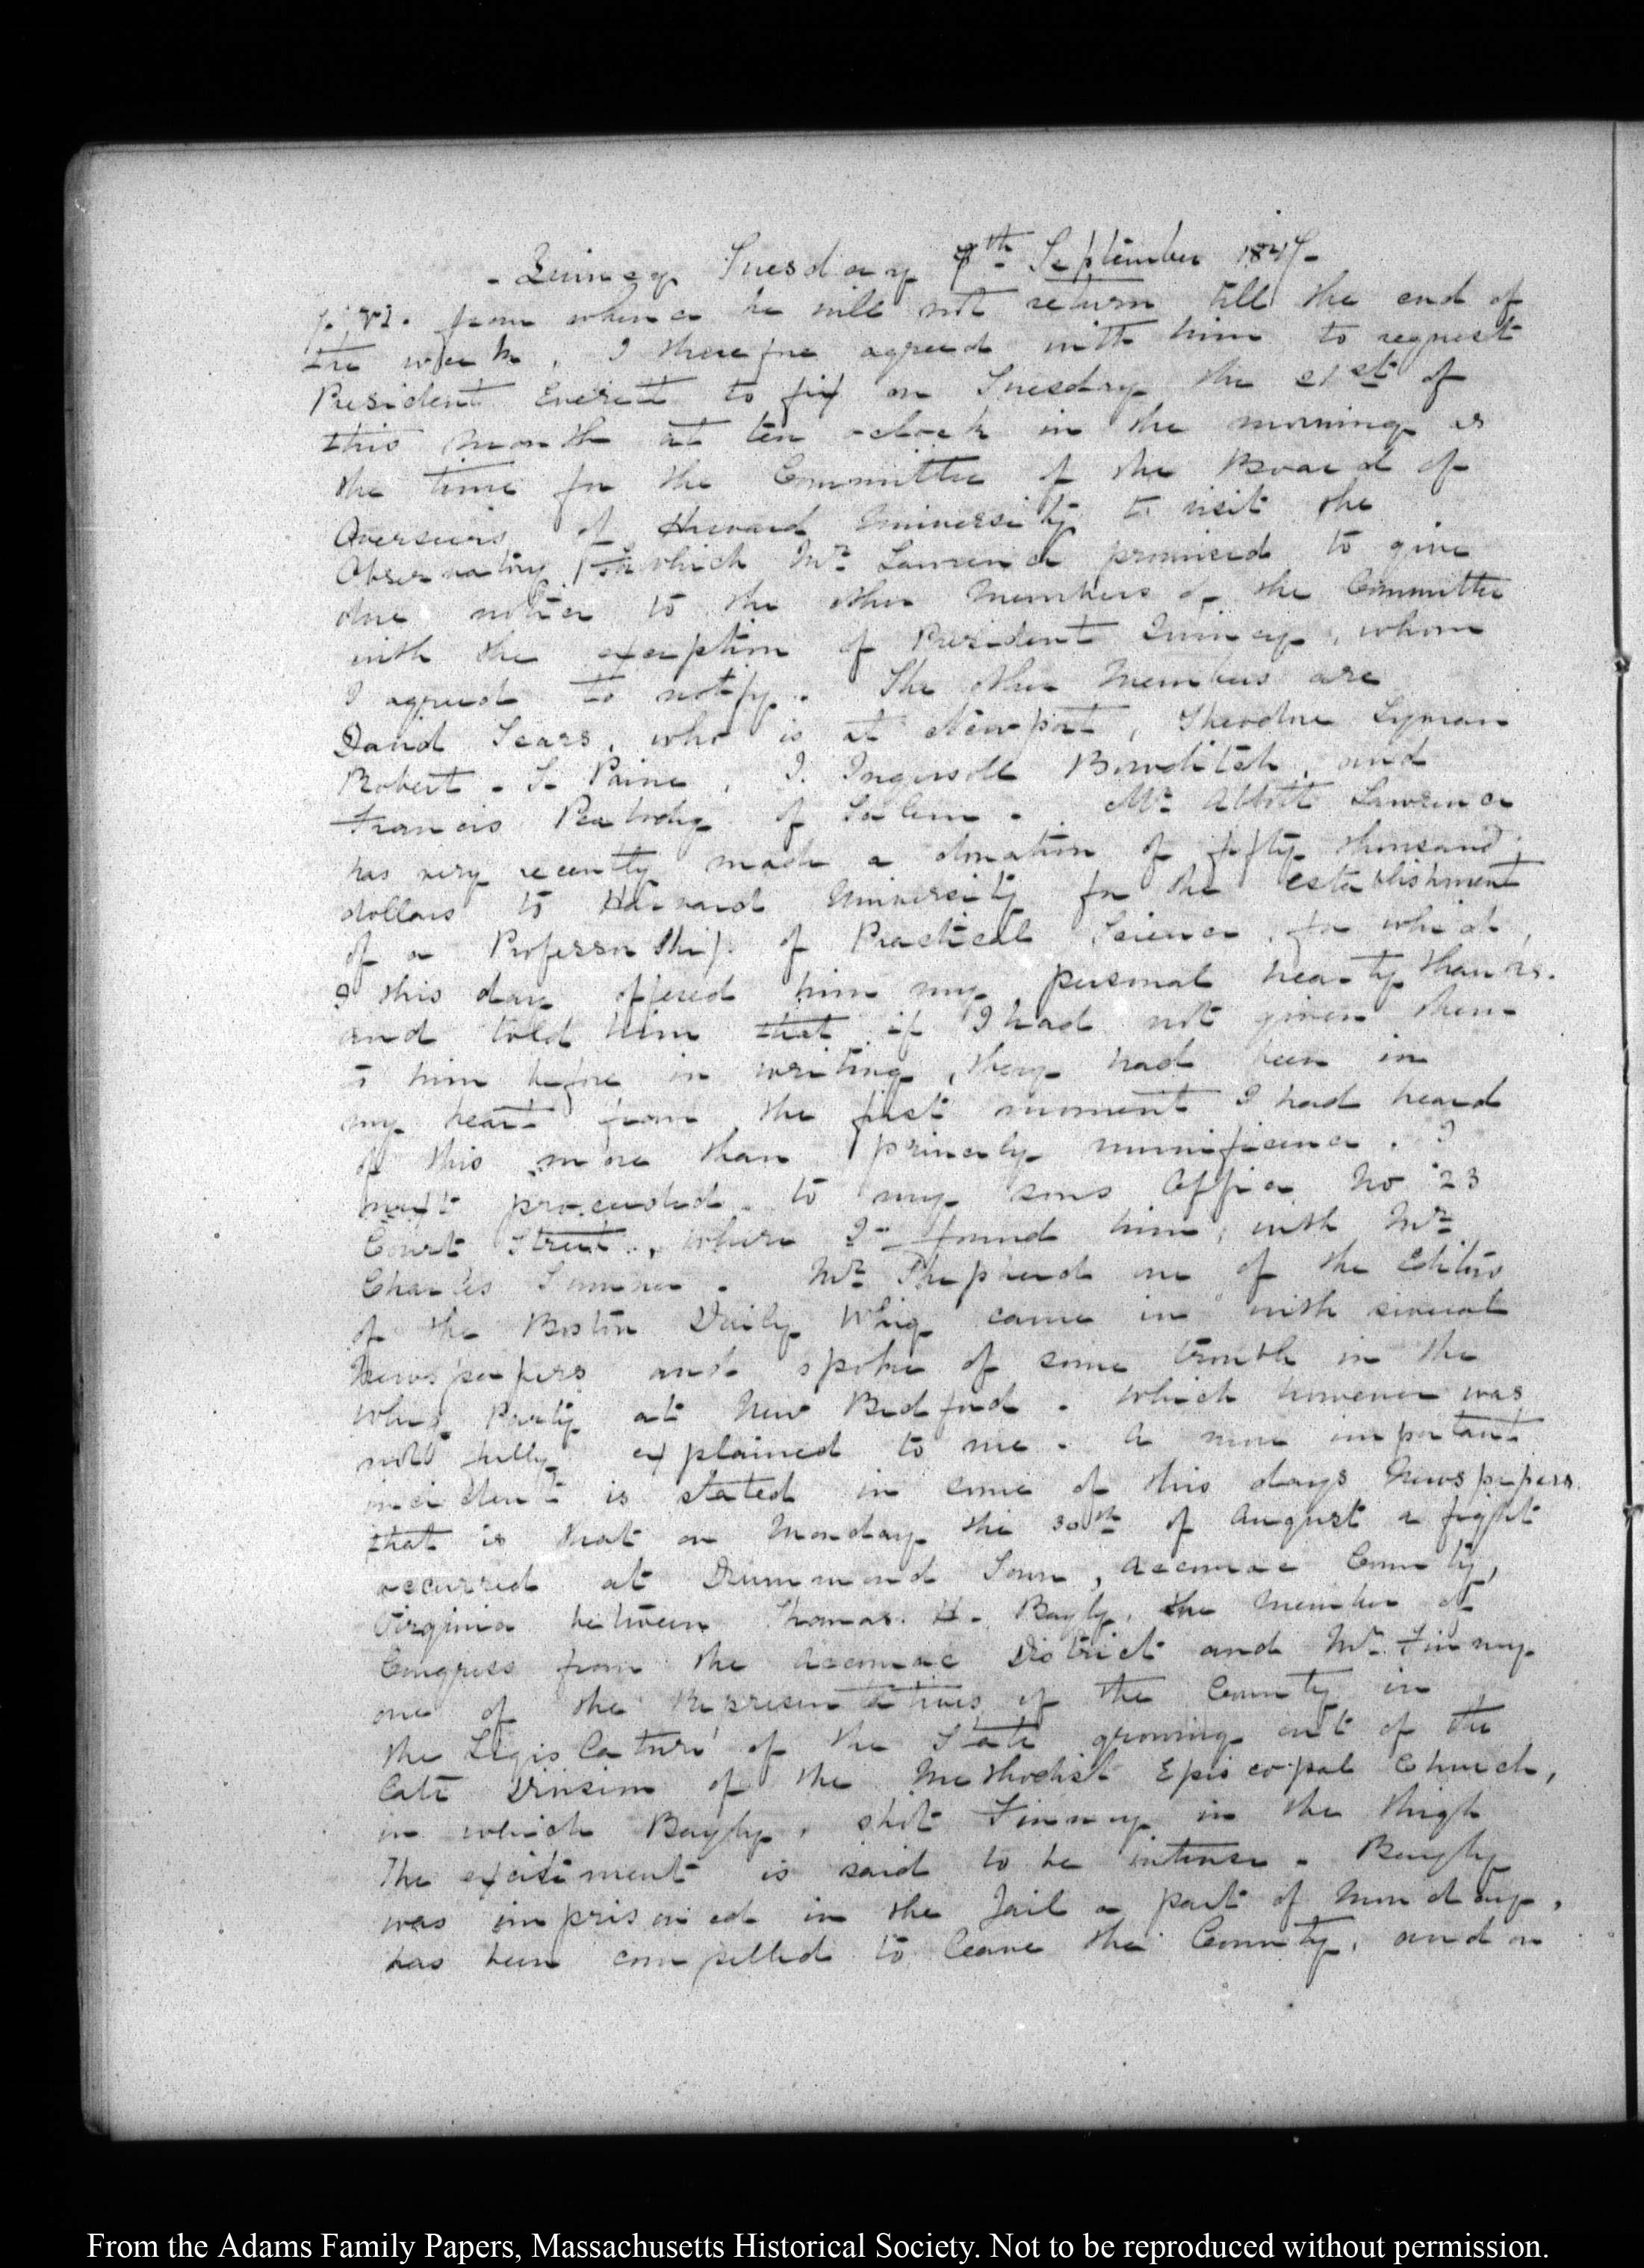 - Quincy Tuesday 7th September 1847-
from whence he will not return till the end of
the week. I therefore agreed with him to request
President Everett to fix on Tuesday the 21st of
this month at ten oclock in the morning as
the time for the Committee of the Board of
Overseers of Harvard University to visit the
Observatory which Mr Lawrence promised to give
due notice to the other Members of the Committee
with the exception of President Quincy, whom
I agreed to notify. The other Members are
David Sears, who is at Newport, Theodore Lyman
Robert - T. Paine, I. Ingersoll Bowditch, and
Francis Peabody of Salem. Mr Abbott Lawrence
has very recently made a donation of fifty thousand
dollars to Harvard University for the establishment
of a Professorship of Practical Science, for which,
I this day offered him my personal hearty thanks.
and told him that if I had not given them
to him before in writing, they had been in
my heart from the first moment I had heard
of this more than princely munificence. I
next proceeded to my sons Office No 23
Court Street, where I found him, with Mr
Charles Sumner. Mr Shepherd one of the Editors
of the Boston Daily Whig came in with several
Newspapers and spoke of some trouble in the
Whig Party at New Bedford. which however was
not fully explained to me. A more important
incident is stated in some of this days Newspapers
that is that on Monday the 30th of August a fight
occurred at Drummond Town, Accomac County,
Virginia between Thomas. H. Bayly, the Member of
Congress from the Accomac District and Mr. Finney
one of the Representatives of the County in
the Legislature of the State growing out of the
late Division of the Methodist Episcopal Church,
in which Bayly, shot Finney in the thigh
The excitement is said to be intense. Bayly
was imprisoned in the Jail a part of Monday,
has been compelled to leave the County, and on
From the Adams Family Papers, Massachusetts Historical Society. Not to be reproduced without permission.